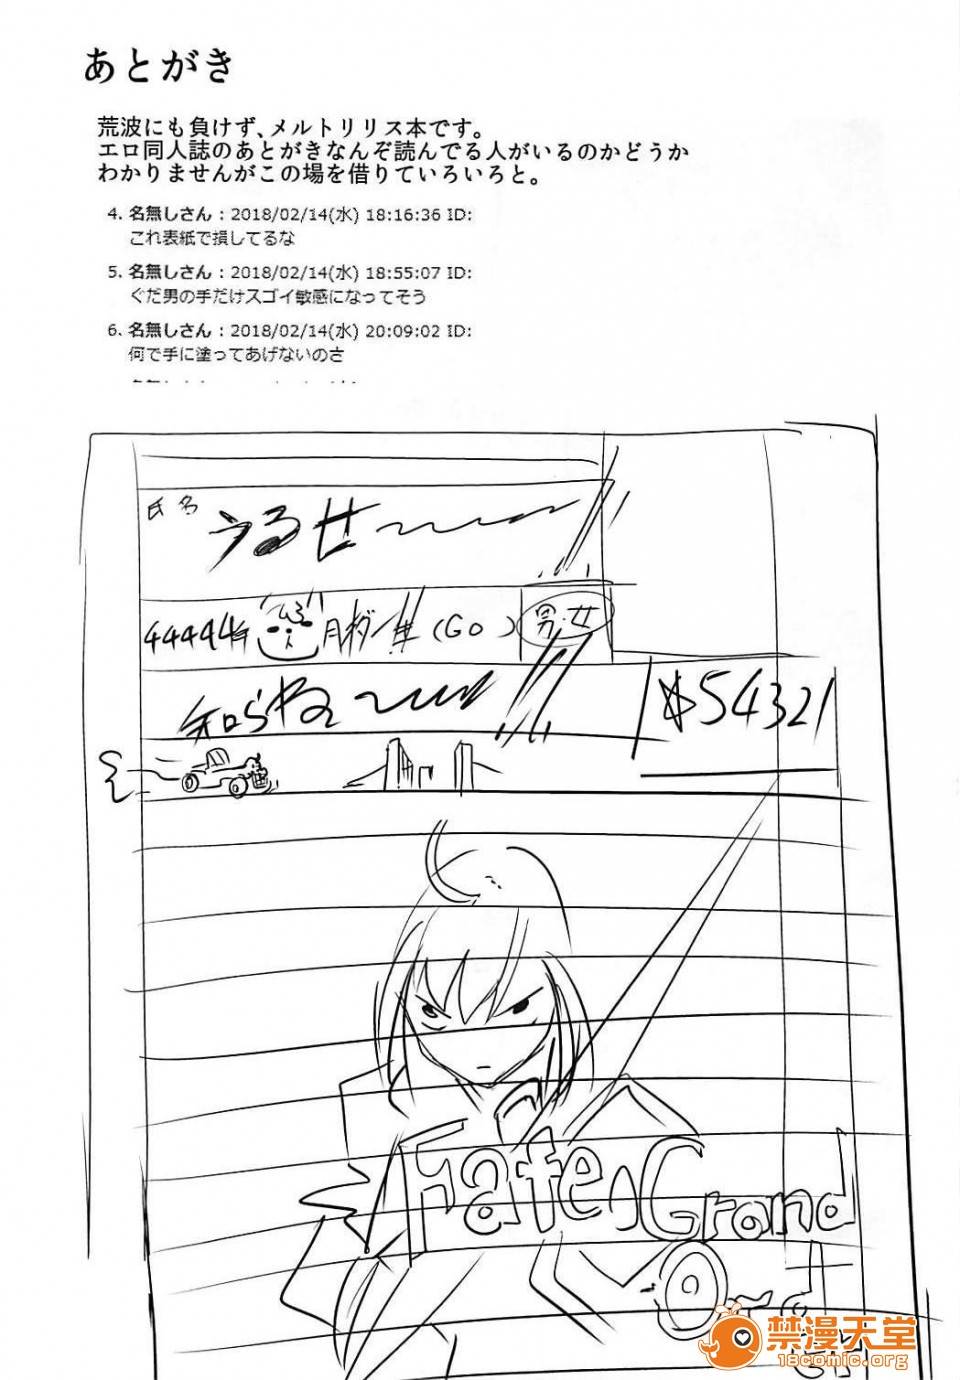 あとがき
荒波にも負けず、メルトリリス本です。
エロ同人誌のあとがきなんぞ読んでる人がいるのかどうか
わかりませんがこの場を借りていろいろと。
4. 名無しさん：2018/02/14(水) 18:16:36 ID:
これ表紙で損してるな
5. 名無しさん：2018/02/14(水) 18:55:07 ID:
ぐだ男の手だけスゴイ敏感になってそう
6. 名無しさん：2018/02/14(水) 20:09:02 ID:
何で手に塗ってあげないのさ
氏名
うるせ〜〜〜!!
44444年 月 (GO) 男・女
知らね〜〜〜!!
54321
Fate
Grand
Ord
er
禁漫天堂
18comic.org